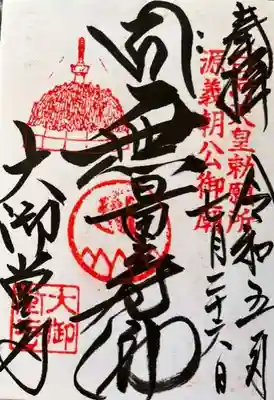 奉拝
令和五年
月二十六日
皇勅願所
源義朝公御廟
無量寿佛
大御堂寺
大御堂寺